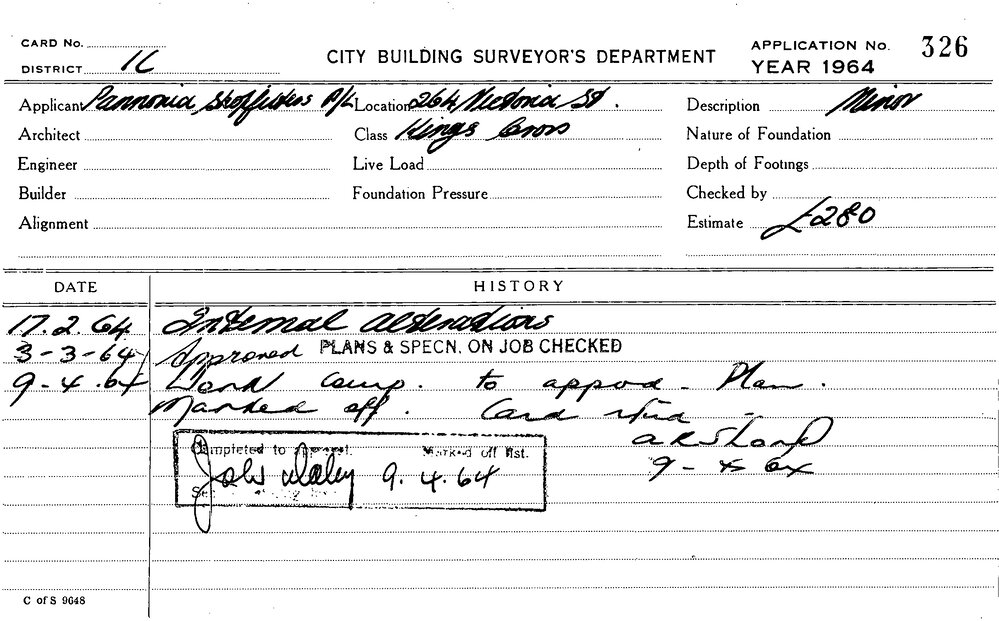 CARD No.
DISTRICT 1C
CITY BUILDING SURVEYOR'S DEPARTMENT
APPLICATION No. 326
YEAR 1964
Applicant Pannonia Shopfitters P/L Location 264 Victoria St. Description Minor
Architect Class Kings Cross Nature of Foundation
Engineer Live Load Depth of Footings
Builder Foundation Pressure Checked by
Alignment Estimate £280
DATE HISTORY
17.2.64 Internal alterations
3-3-64 Approved PLANS & SPECN. ON JOB CHECKED
9-4.64 Work comp. to appvd - Plan.
Marked off. Card
9-4 64
Completed to approval. Marked off list.
John Daley 9.4.64
C of S 9648